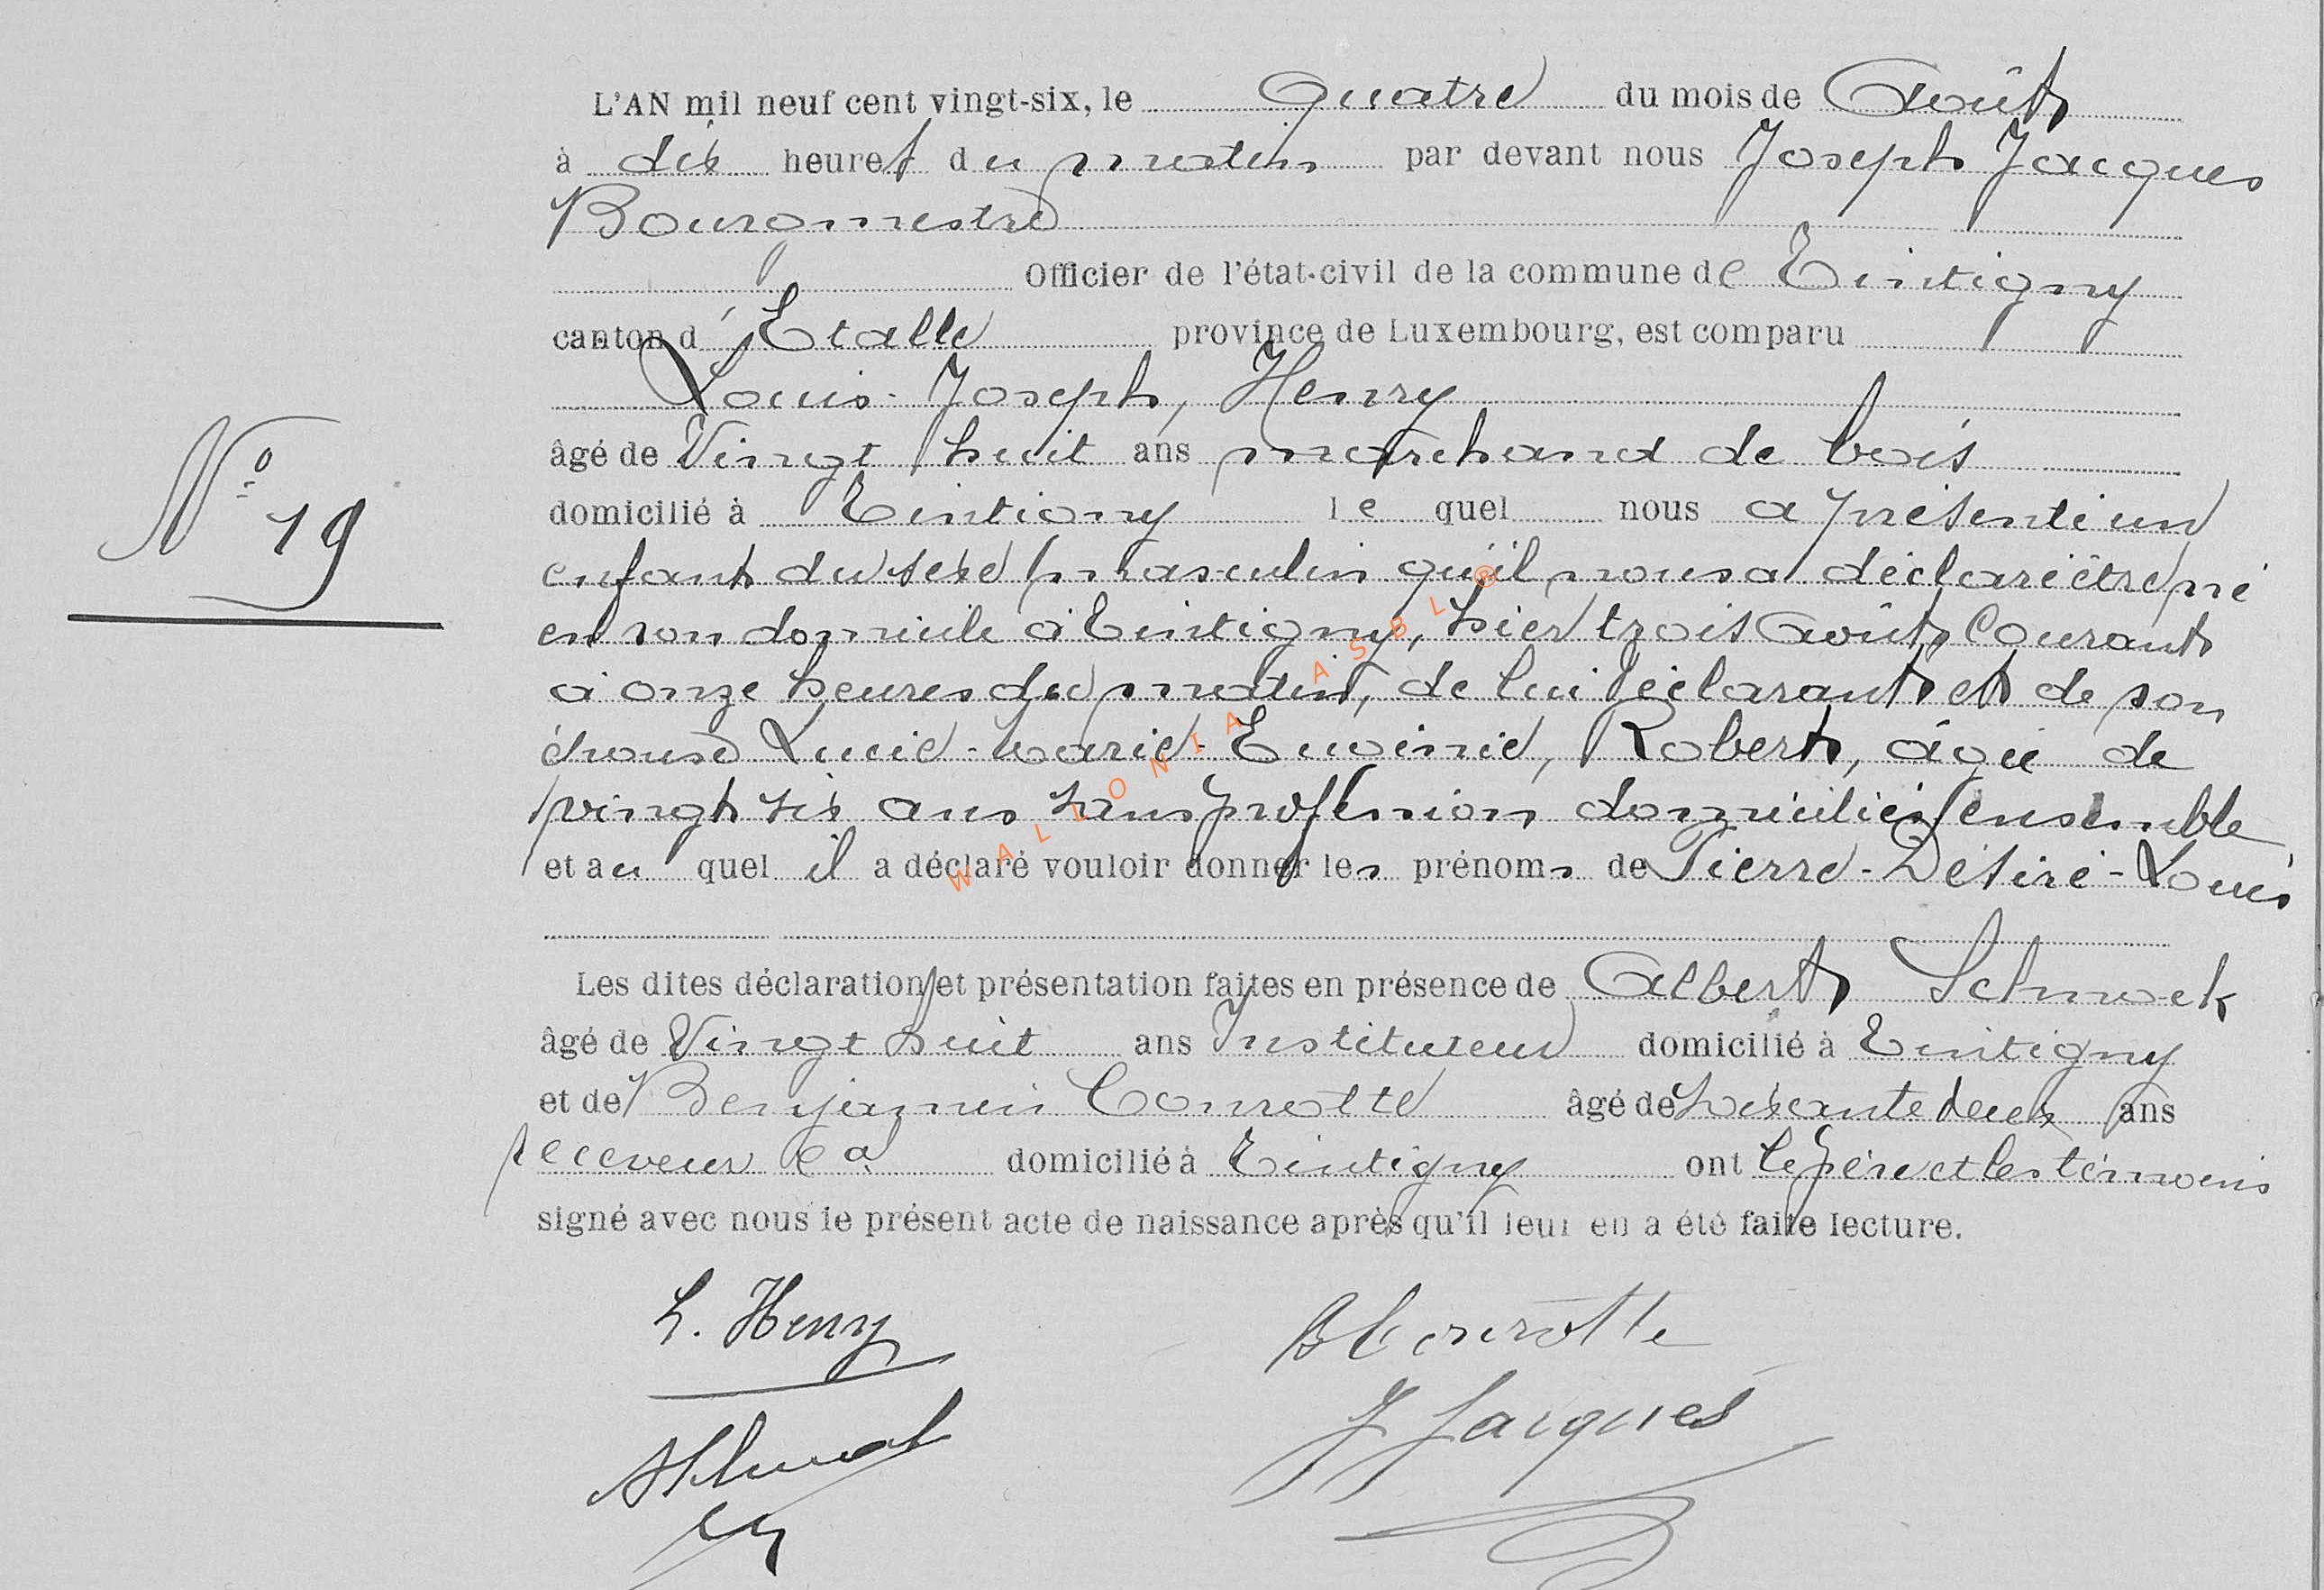 L'AN mil neuf cent vingt-six, le Quatre du mois de Août
à dix heures du matin par devant nous Joseph Jacques
Bourgmestre
Officier de l'état-civil de la commune de Tintigny
canton d'Etalle province de Luxembourg, est comparu
Louis-Joseph, Henry
âgé de Vingt huit ans marchand de bois
N° 19
domicilié à Tintigny le quel nous a présenté un
enfant du sexe masculin qu'il nous a déclaré être né
en son domicile à Tintigny, hier trois Août Courant
à onze heures du matin, de lui déclarant et de son
épouse Lucie-Marie-Eugénie, Robert, âgée de
vingt six ans sans profession domiciliés ensemble
et au quel il a déclaré vouloir donner les prénoms de Pierre-Désiré-Louis
Les dites déclaration et présentation faites en présence de Albert
âgé de Vingt huit ans Instituteur domicilié à Tintigny
et de Benjamin Conrotte âgé de soixante deux ans
receveur domicilié à Tintigny ont le père et les témoins
signé avec nous le présent acte de naissance après qu'il leur en a été faite lecture.
L. Henry
B Conrotte
J Jacques
WALLONIA ASBL ®